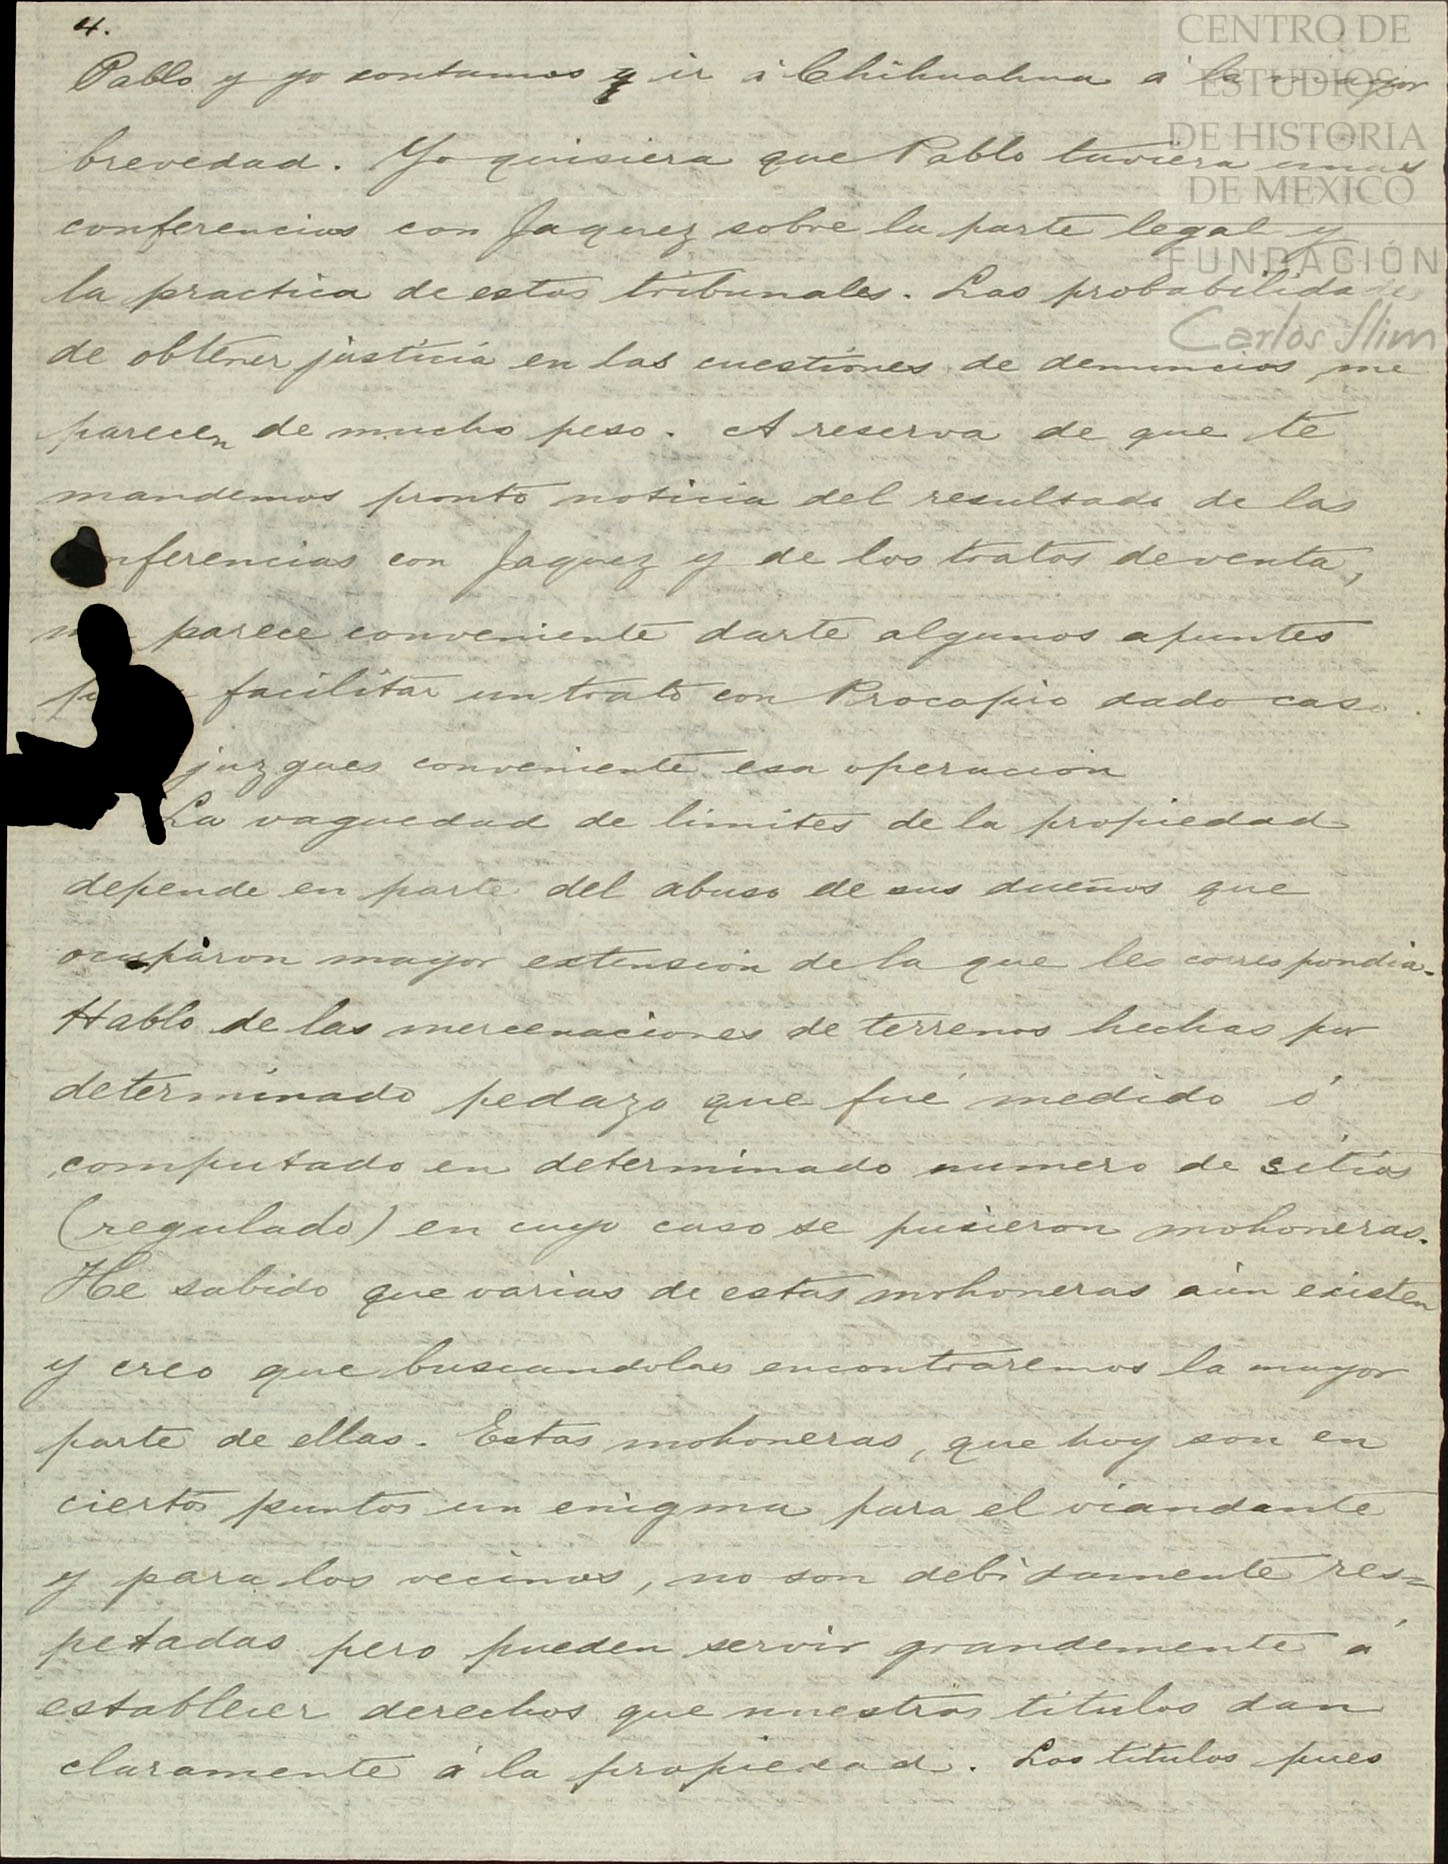 4.
Pablo y yo contamos q ir á Chihuahua á la mayor
brevedad. Yo quisiera que Pablo tuviera unas
conferencias con Jaquez sobre la parte legal y
la practica de estos tribunales. Las probabilidades
de obtener justicia en las cuestiones de denuncios me
parecen de mucho peso. A reserva de que te
mandemos pronto noticia del resultado de las
nferencias con Jaquez y de los tratos de venta,
parece conveniente darte algunos apuntes
facilitar un trato con Procopio dado caso
juzgues conveniente esa operacion
La vaguedad de limites de la propiedad
depende en parte del abuso de sus dueños que
ocuparon mayor extension de la que les correspondia.
Hablo de las mercenaciones de terrenos hechas por
determinado pedazo que fué medido ó
computado en determinado numero de sitios
(regulado) en cuyo caso se pusieron mohoneras.
He sabido que varias de estas mohoneras aún existen
y creo que buscandolas encontraremos la mayor
parte de ellas. Estas mohoneras, que hoy son en
ciertos puntos un enigma para el viandante
y para los vecinos, no son debidamente res=
petadas pero pueden servir grandemente á
establecer derechos que nuestros titulos dan
claramente á la propiedad. Los titulos pues
CENTRO DE
ESTUDIOS
DE HISTORIA
DE MEXICO
FUNDACIÓN
Carlos Slim